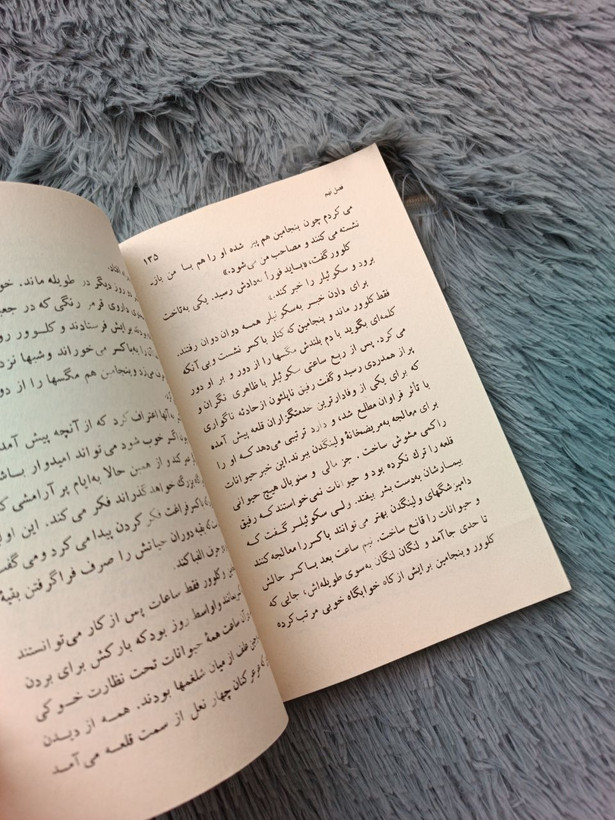 فصل نهم
۱۳۵
می کردم چون بنجامین هم پیر شده او را هم بسا من باز-
نشسته می کنند و مصاحب من می شود.»
کلوور گفت، «باید فوراً بدادش رسید. یکی به‌تاخت
برود و سکوئیلر را خبر کند.»
برای دادن خبر به‌سکوئیلر همه دوان دوان رفتند.
فقط کلوور ماند و بنجامین که کنار باکسر نشست و بی آنکه
کلمه‌ای بگوید با دم بلندش مگسها را از دور و بر او دور
می کرد. پس از ربع ساعتی سکوئیلر با ظاهری نگران و
پر از همدردی رسید و گفت رفیق ناپلئون از حادثه ناگواری
که برای یکی از وفادارترین خدمتگزاران قلعه پیش آمده
با تأثر فراوان مطلع شد، و دارد ترتیبی می‌دهد که او را
برای معالجه به‌مریضخانهٔ ولینگدن ببرند. این خبر حیوانات
را کمی مشوش ساخت. جز مالی و سنوبال هیچ حیوانی
قلعه را ترک نکرده بود و حیوانات نمی خواستند که رفیق
بیمارشان به‌دست بشر بیفتد. ولی سکوئیلر گفت که
دامپزشگهای ولینگدن بهتر می توانند باکسر را معالجه کنند
و حیوانات را قانع ساخت. نیم ساعت بعد باکسر حالش
تا حدی جا آمد و لنگان لنگان به‌سوی طویله‌اش، جایی که
کلوور و بنجامین برایش از کاه خوابگاه خوبی مرتب کرده
روز دیگر در طویله ماند. خو
داروی قرمز رنگی که در جع
برایش فرستادند و کلوور رو
را به‌باکسر می خوراند و شبها نزد
می‌زد و بنجامین هم مگسها را از دو
آنها اعتراف کرد که از آنچه پیش آمد
اگر خوب شود می تواند امیدوار باش
کند و از همین حالا به‌ایام پر آرامشی ک
بزرگ خواهد گذراند فکر می کند. این او
باکسر فراغت فکر کردن پیدا می کرد و می گف
که بقیه دوران حیاتش را صرف فرا گرفتن بقیهٔ
الفبا کند.
و کلوور فقط ساعات پس از کار می توانستند
بمانند و اواسط روز بود که بار کش برای بردن
ساعت همهٔ حیوانات تحت نظارت خوکی
علف از میان شلغمها بودند. همه از دیدن
عرعر کنان چهار نعل از سمت قلعه می آمد